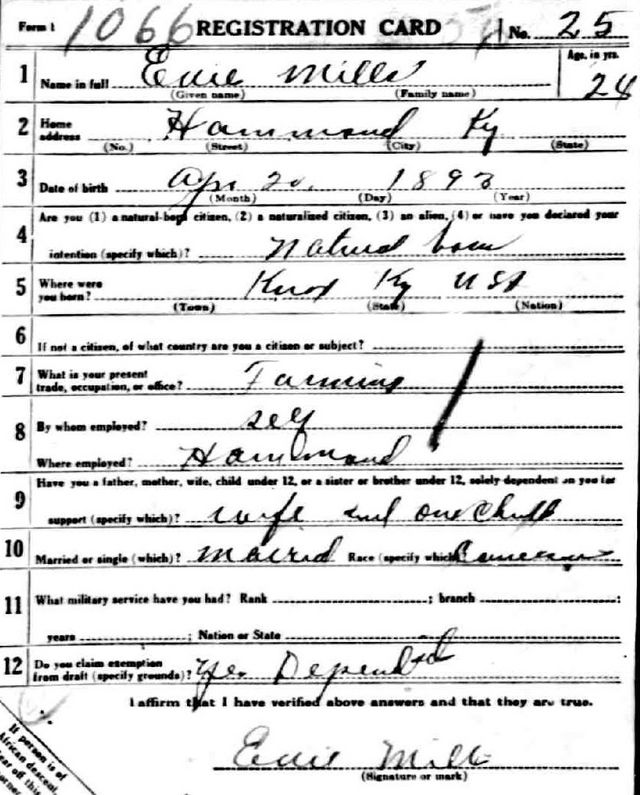 Form 1 1066 REGISTRATION CARD No. 25
1 Name in full Evie Mills Age, in yrs. 24
(Given name) (Family name)
2 Home address Hammond Ky
(No.) (Street) (City) (State)
3 Date of birth Apr 20, 1893
(Month) (Day) (Year)
4 Are you (1) a natural-born citizen, (2) a naturalized citizen, (3) an alien, (4) or have you declared your
intention (specify which)? Natural born
5 Where were you born? Knox Ky USA
(Town) (State) (Nation)
6 If not a citizen, of what country are you a citizen or subject?
7 What is your present trade, occupation, or office? Farming
8 By whom employed? self
Where employed? Hammond
9 Have you a father, mother, wife, child under 12, or a sister or brother under 12, solely dependent on you for
support (specify which)? wife and one child
10 Married or single (which)? Married Race (specify which)
11 What military service have you had? Rank ; branch ;
years ; Nation or State
12 Do you claim exemption from draft (specify grounds)? yes
I affirm that I have verified above answers and that they are true.
Evie Mills
(Signature or mark)
If person is of
African descent,
tear off this
corner